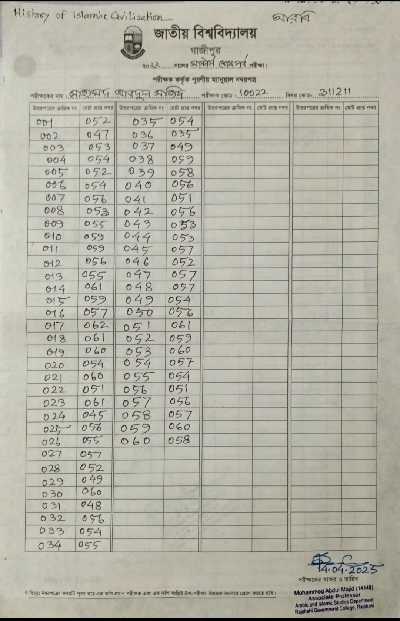 History of islamic Civilization
আরবি
জাতীয় বিশ্ববিদ্যালয়
গাজীপুর
পরীক্ষক কর্তৃক পূরণীয় ম্যানুয়াল নম্বরপত্র
পরীক্ষকের নাম : মোহাম্মদ আবদুল মজিদ পরীক্ষক কোড : 10022 বিষয় কোড : 311211
001 052 035 054
002 047 036 035
003 053 037 049
004 054 038 059
005 052 039 058
006 054 040 056
007 056 041 051
008 053 042 056
009 055 043 053
010 059 044 053
011 059 045 057
012 056 046 052
013 055 047 057
014 061 048 057
015 059 049 054
016 057 050 056
017 062 051 061
018 061 052 059
019 060 053 060
020 054 054 057
021 060 055 054
022 051 056 051
023 061 057 056
024 045 058 057
025 056 059 060
026 055 060 058
027 057
028 052
029 049
030 060
031 048
032 056
033 054
034 055
14.04.2025
পরীক্ষকের স্বাক্ষর ও তারিখ
Mohammog Abdul Majid (14148)
Associate Professor
Arabic and Islamic Studies Department
Rajshahi Government College, Rajshahi